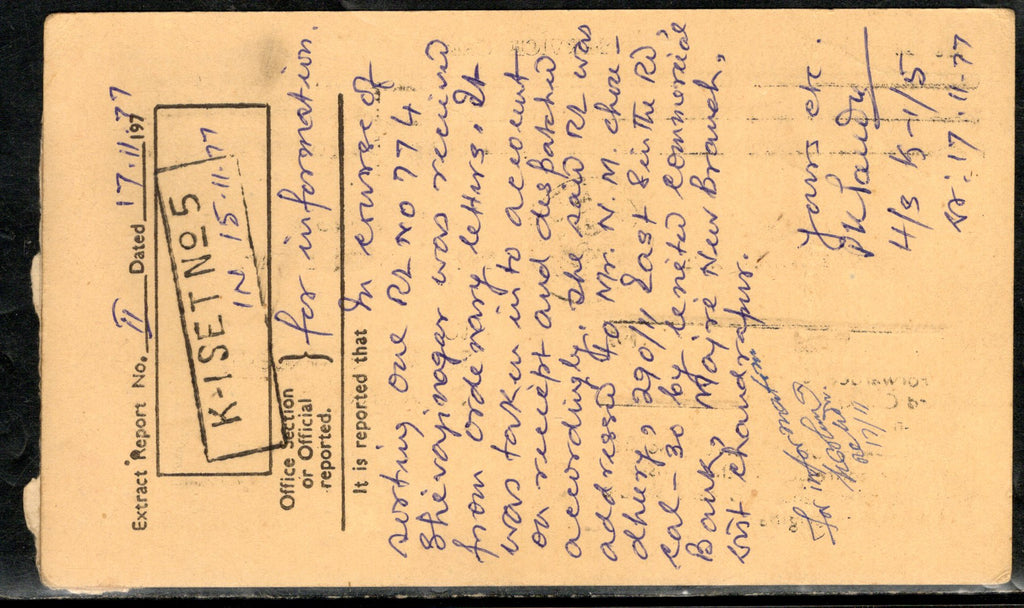 Extract Report No. II Dated 17.11.1977
K-1 SET No 5
IN 15.11.77
Office Section
or Official
reported.
} for information.
It is reported that In course of
sorting one RL No 774
Shivajinagar was received
from ordinary letters. It
was taken in to account
on receipt and despatched
accordingly. The said RL was
addressed to Mr. N. M. Chou-
dhery, 290/1 East Sinthi Rd
cal-30 by United Commercial
Bank, Wojre New Branch,
Dist Chandrapur.
Yours etc.
4/3 K-1/5
Dt: 17.11.77
for information
17/11